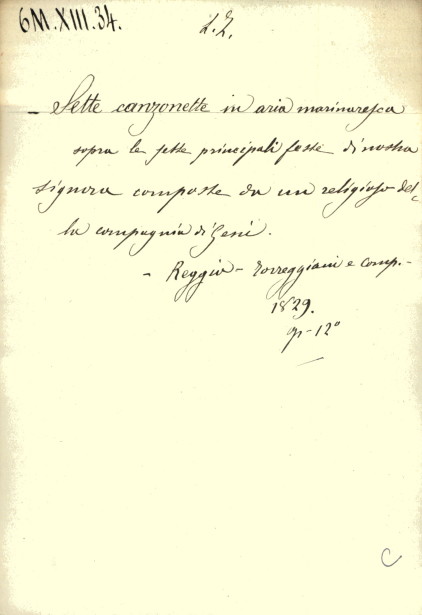 6M.XIII.34.
- Sette canzonette in aria marinaresca
sopra le sette principali feste di nostra
signora composte da un religioso del-
la compagnia di Gesù.
- Reggio - Torreggiani e comp. -
1829.
-12°
C